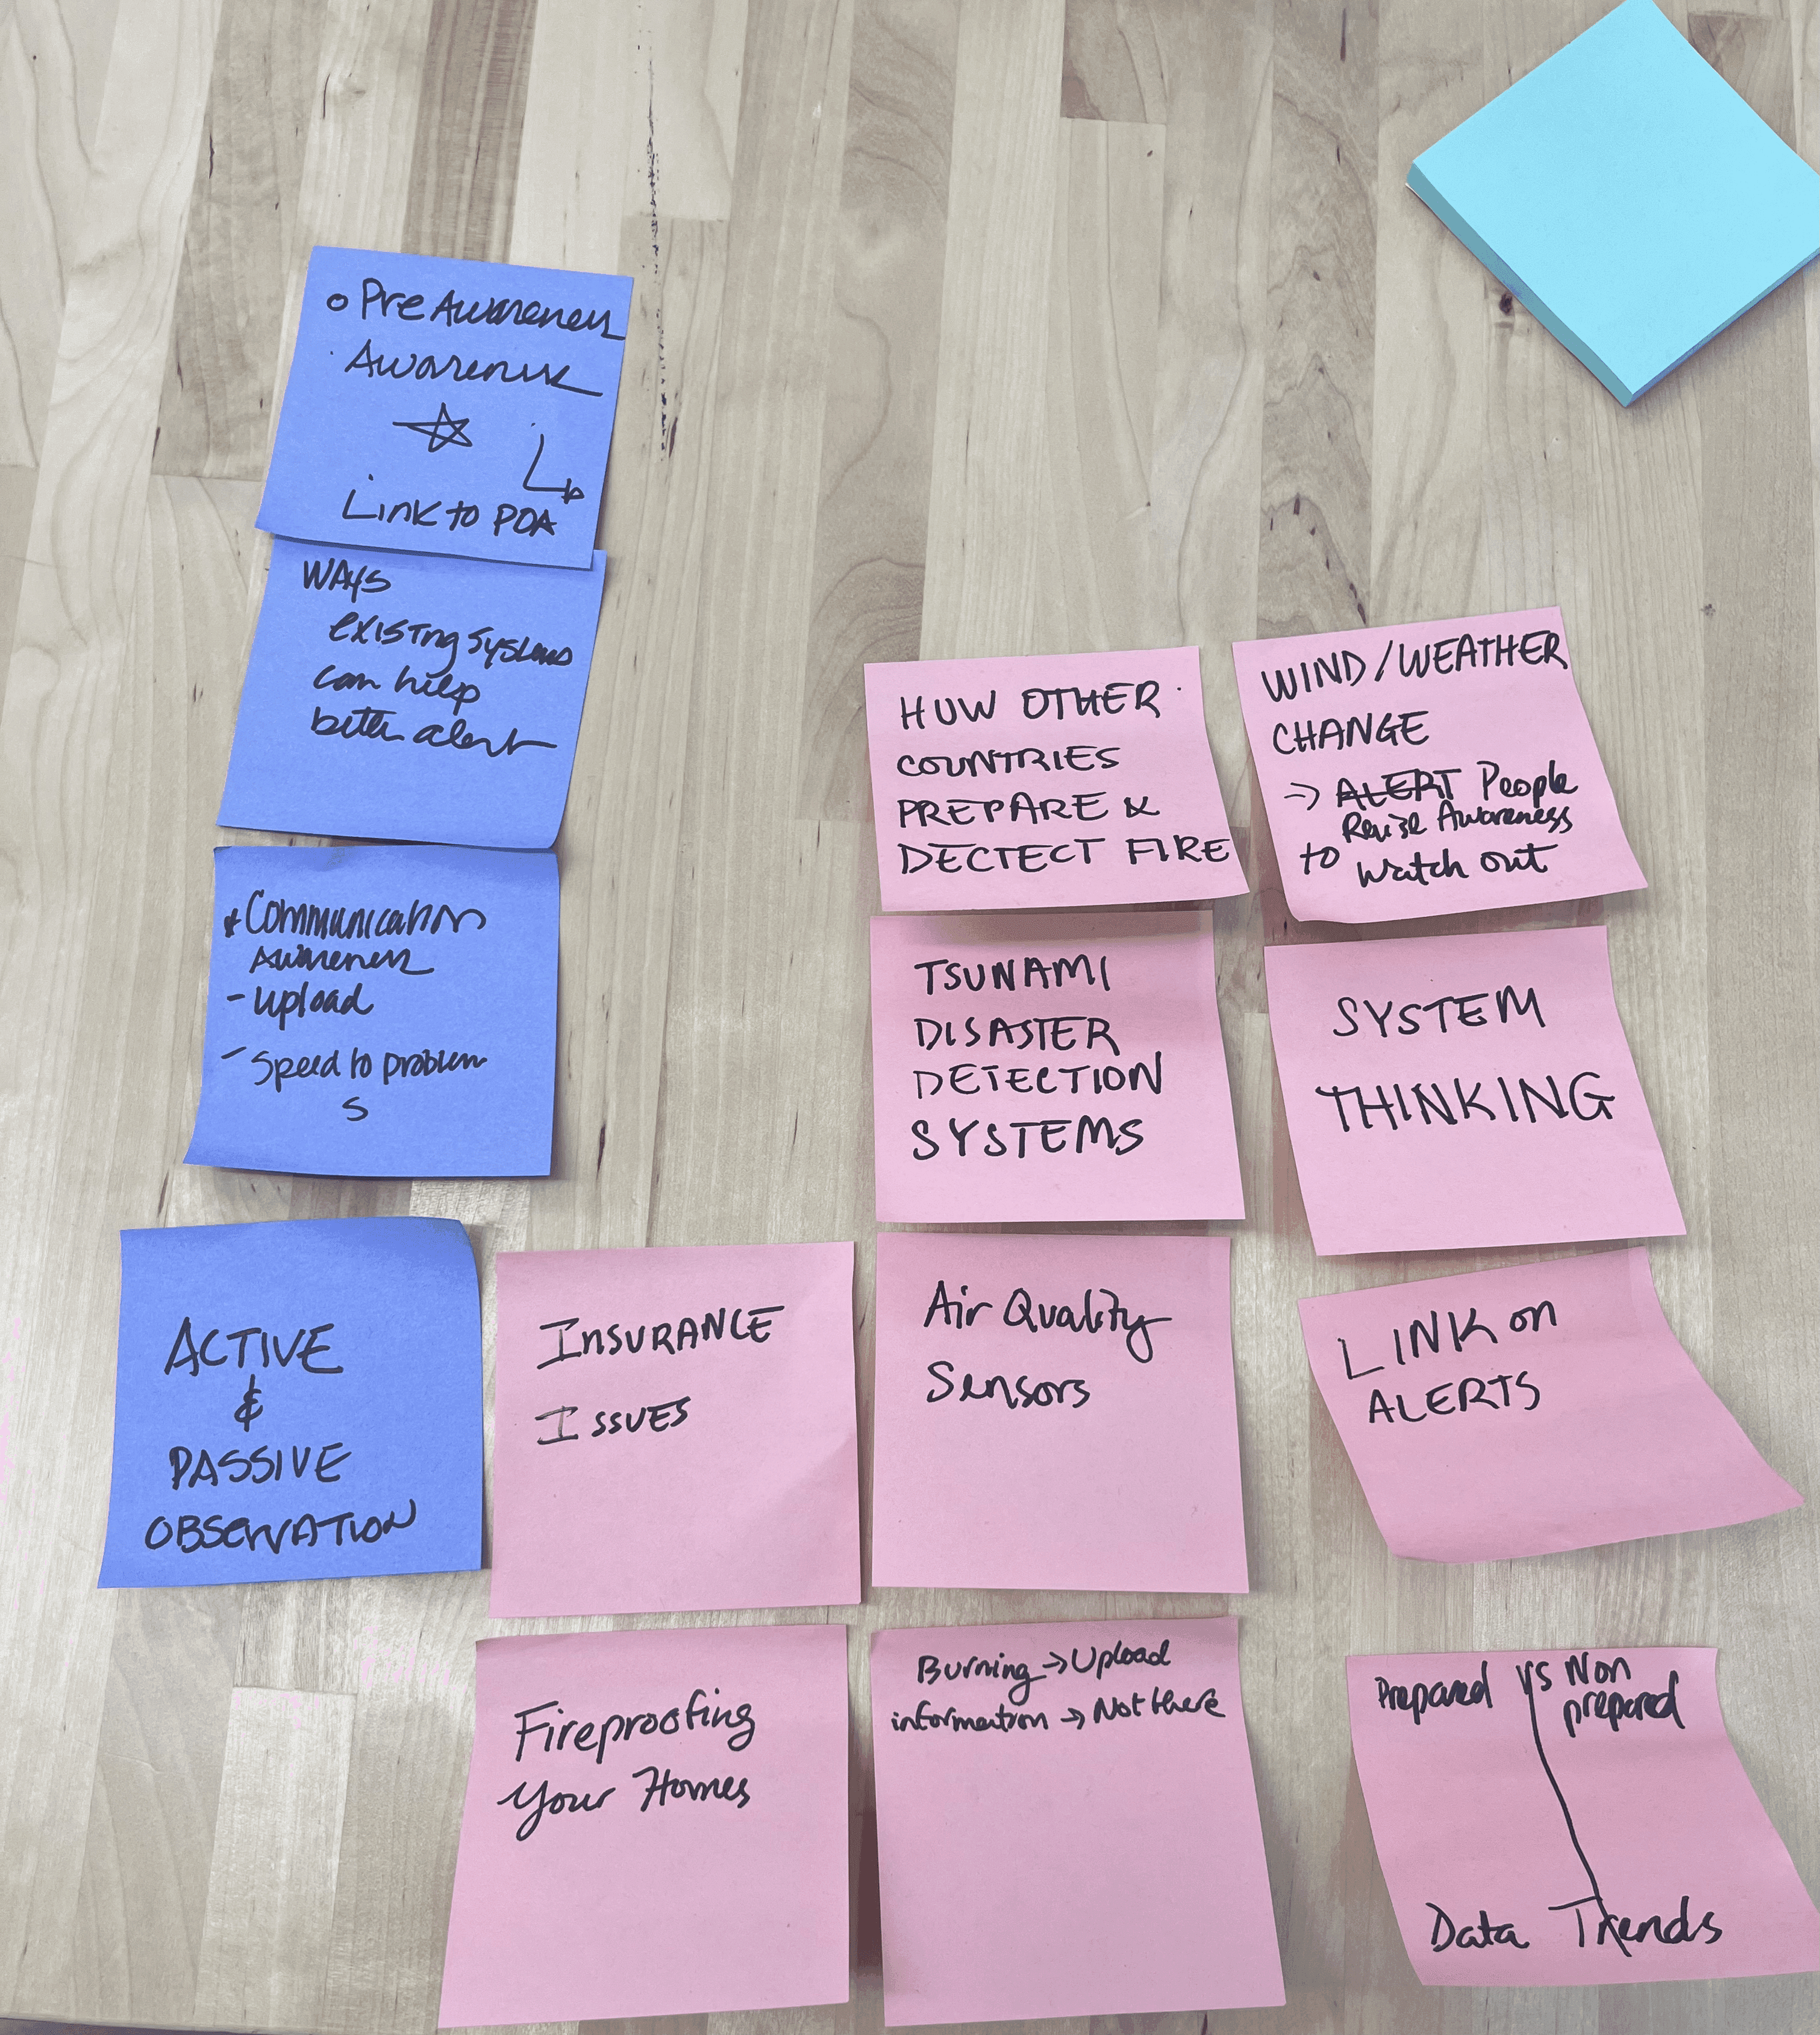 Pre Awareness
Awareness
Link to POA
WAYS
existing systems
can help
better alert
Communication
Awareness
- Upload
- Speed to problem
s
ACTIVE
&
PASSIVE
OBSERVATION
INSURANCE
ISSUES
Fireproofing
Your Homes
HOW OTHER
COUNTRIES
PREPARE &
DECTECT FIRE
TSUNAMI
DISASTER
DETECTION
SYSTEMS
Air Quality
Sensors
Burning → Upload
information → Not there
WIND/WEATHER
CHANGE
→ ALERT People
Raise Awareness
to watch out
SYSTEM
THINKING
LINK on
ALERTS
Prepared vs Non
prepared
Data Trends